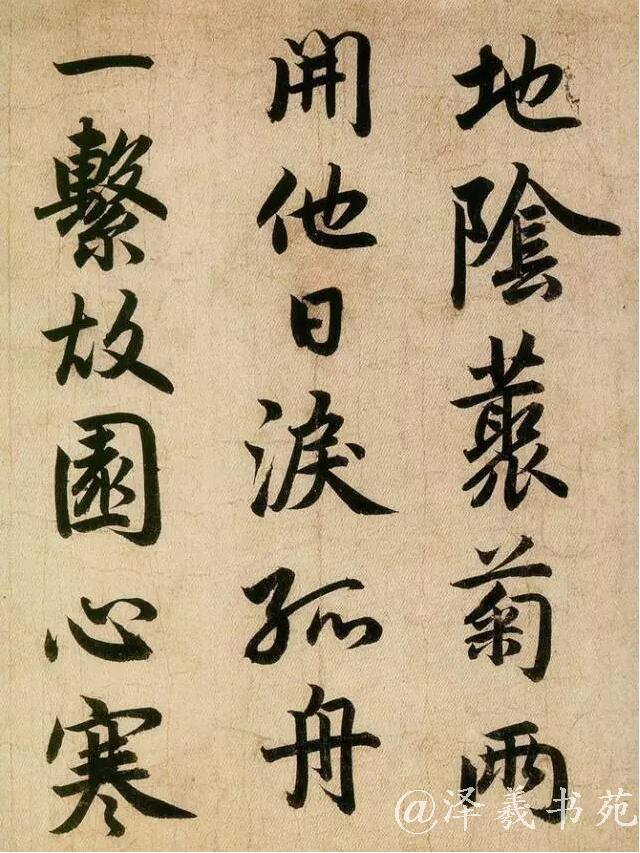 地陰藂菊兩
開他日淚孤舟
一繫故園心寒
@泽羲书苑